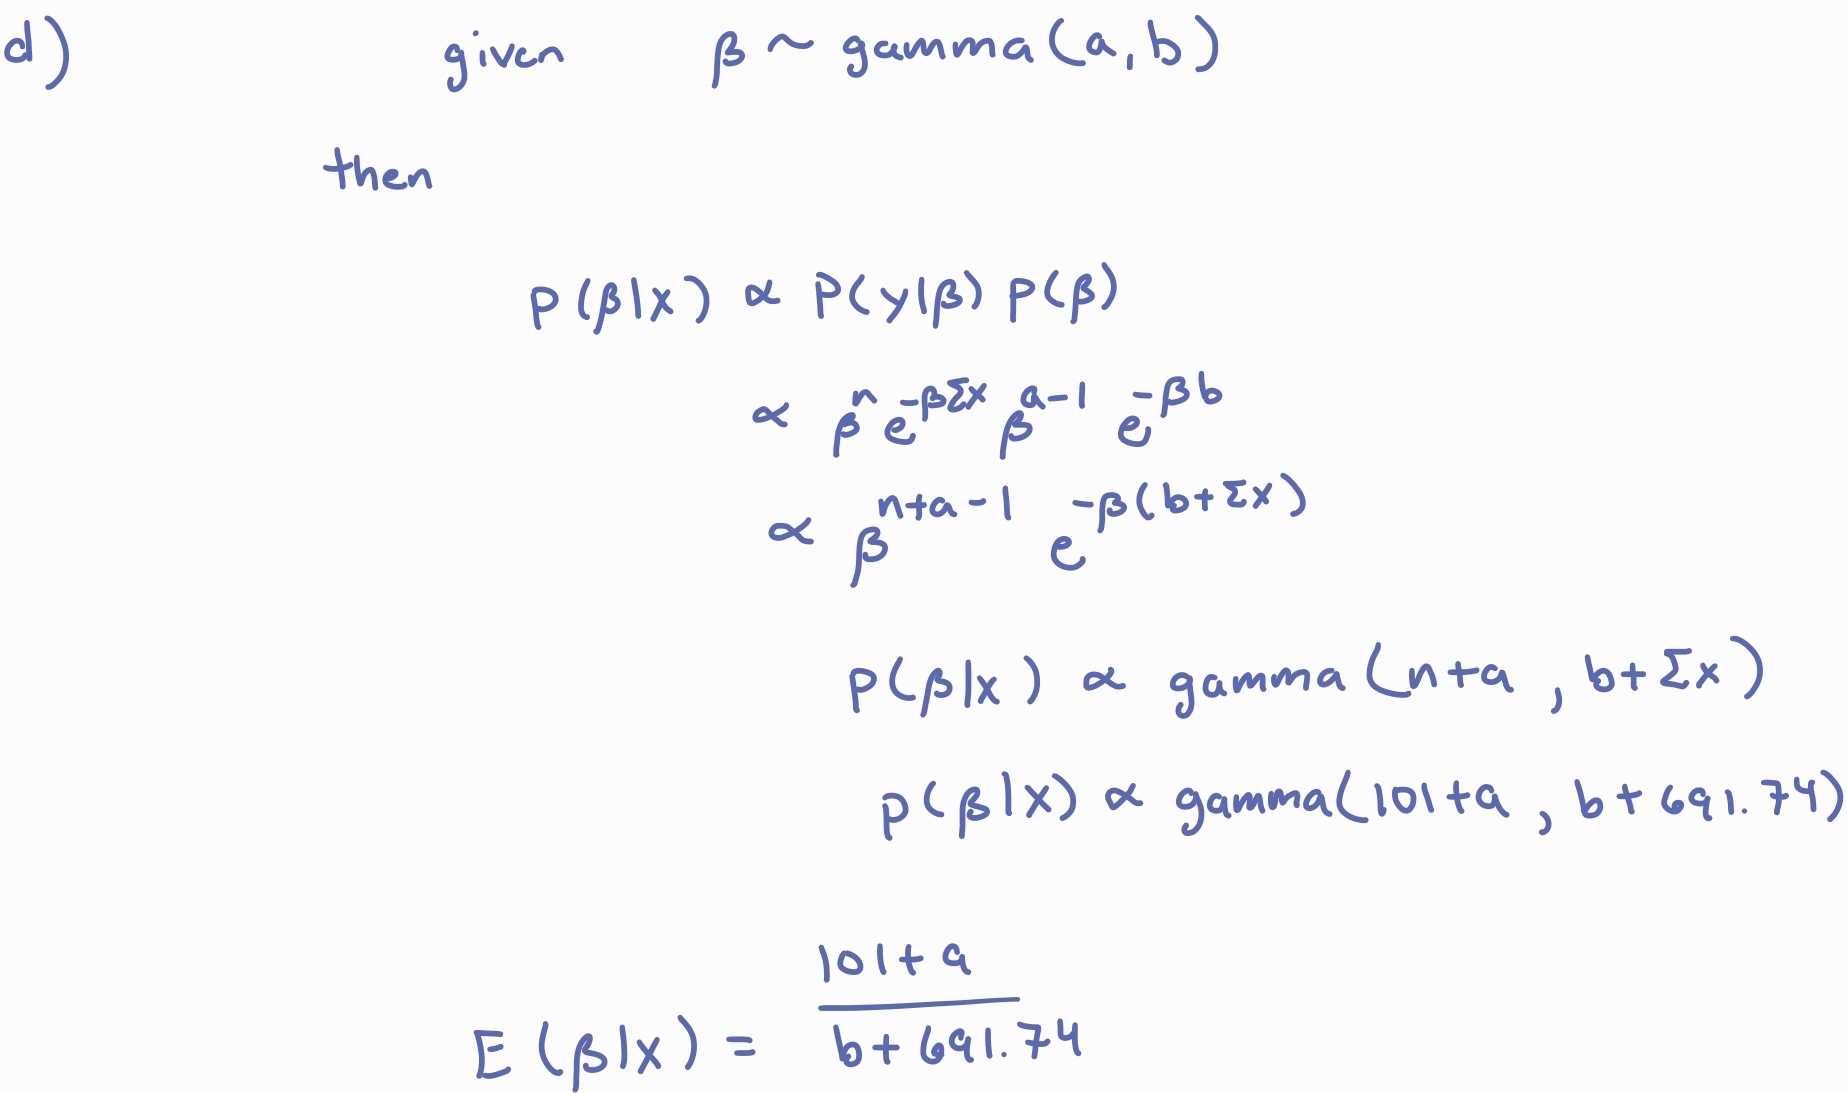 d) given β ~ gamma(a, b)
then
P(β|x) ∝ P(y|β) P(β)
∝ βⁿ e^{-βΣx} β^{a-1} e^{-βb}
∝ β^{n+a-1} e^{-β(b+Σx)}
P(β|x) ∝ gamma(n+a, b+Σx)
p(β|x) ∝ gamma(101+a, b+691.74)
101+a
E(β|x) = b+691.74